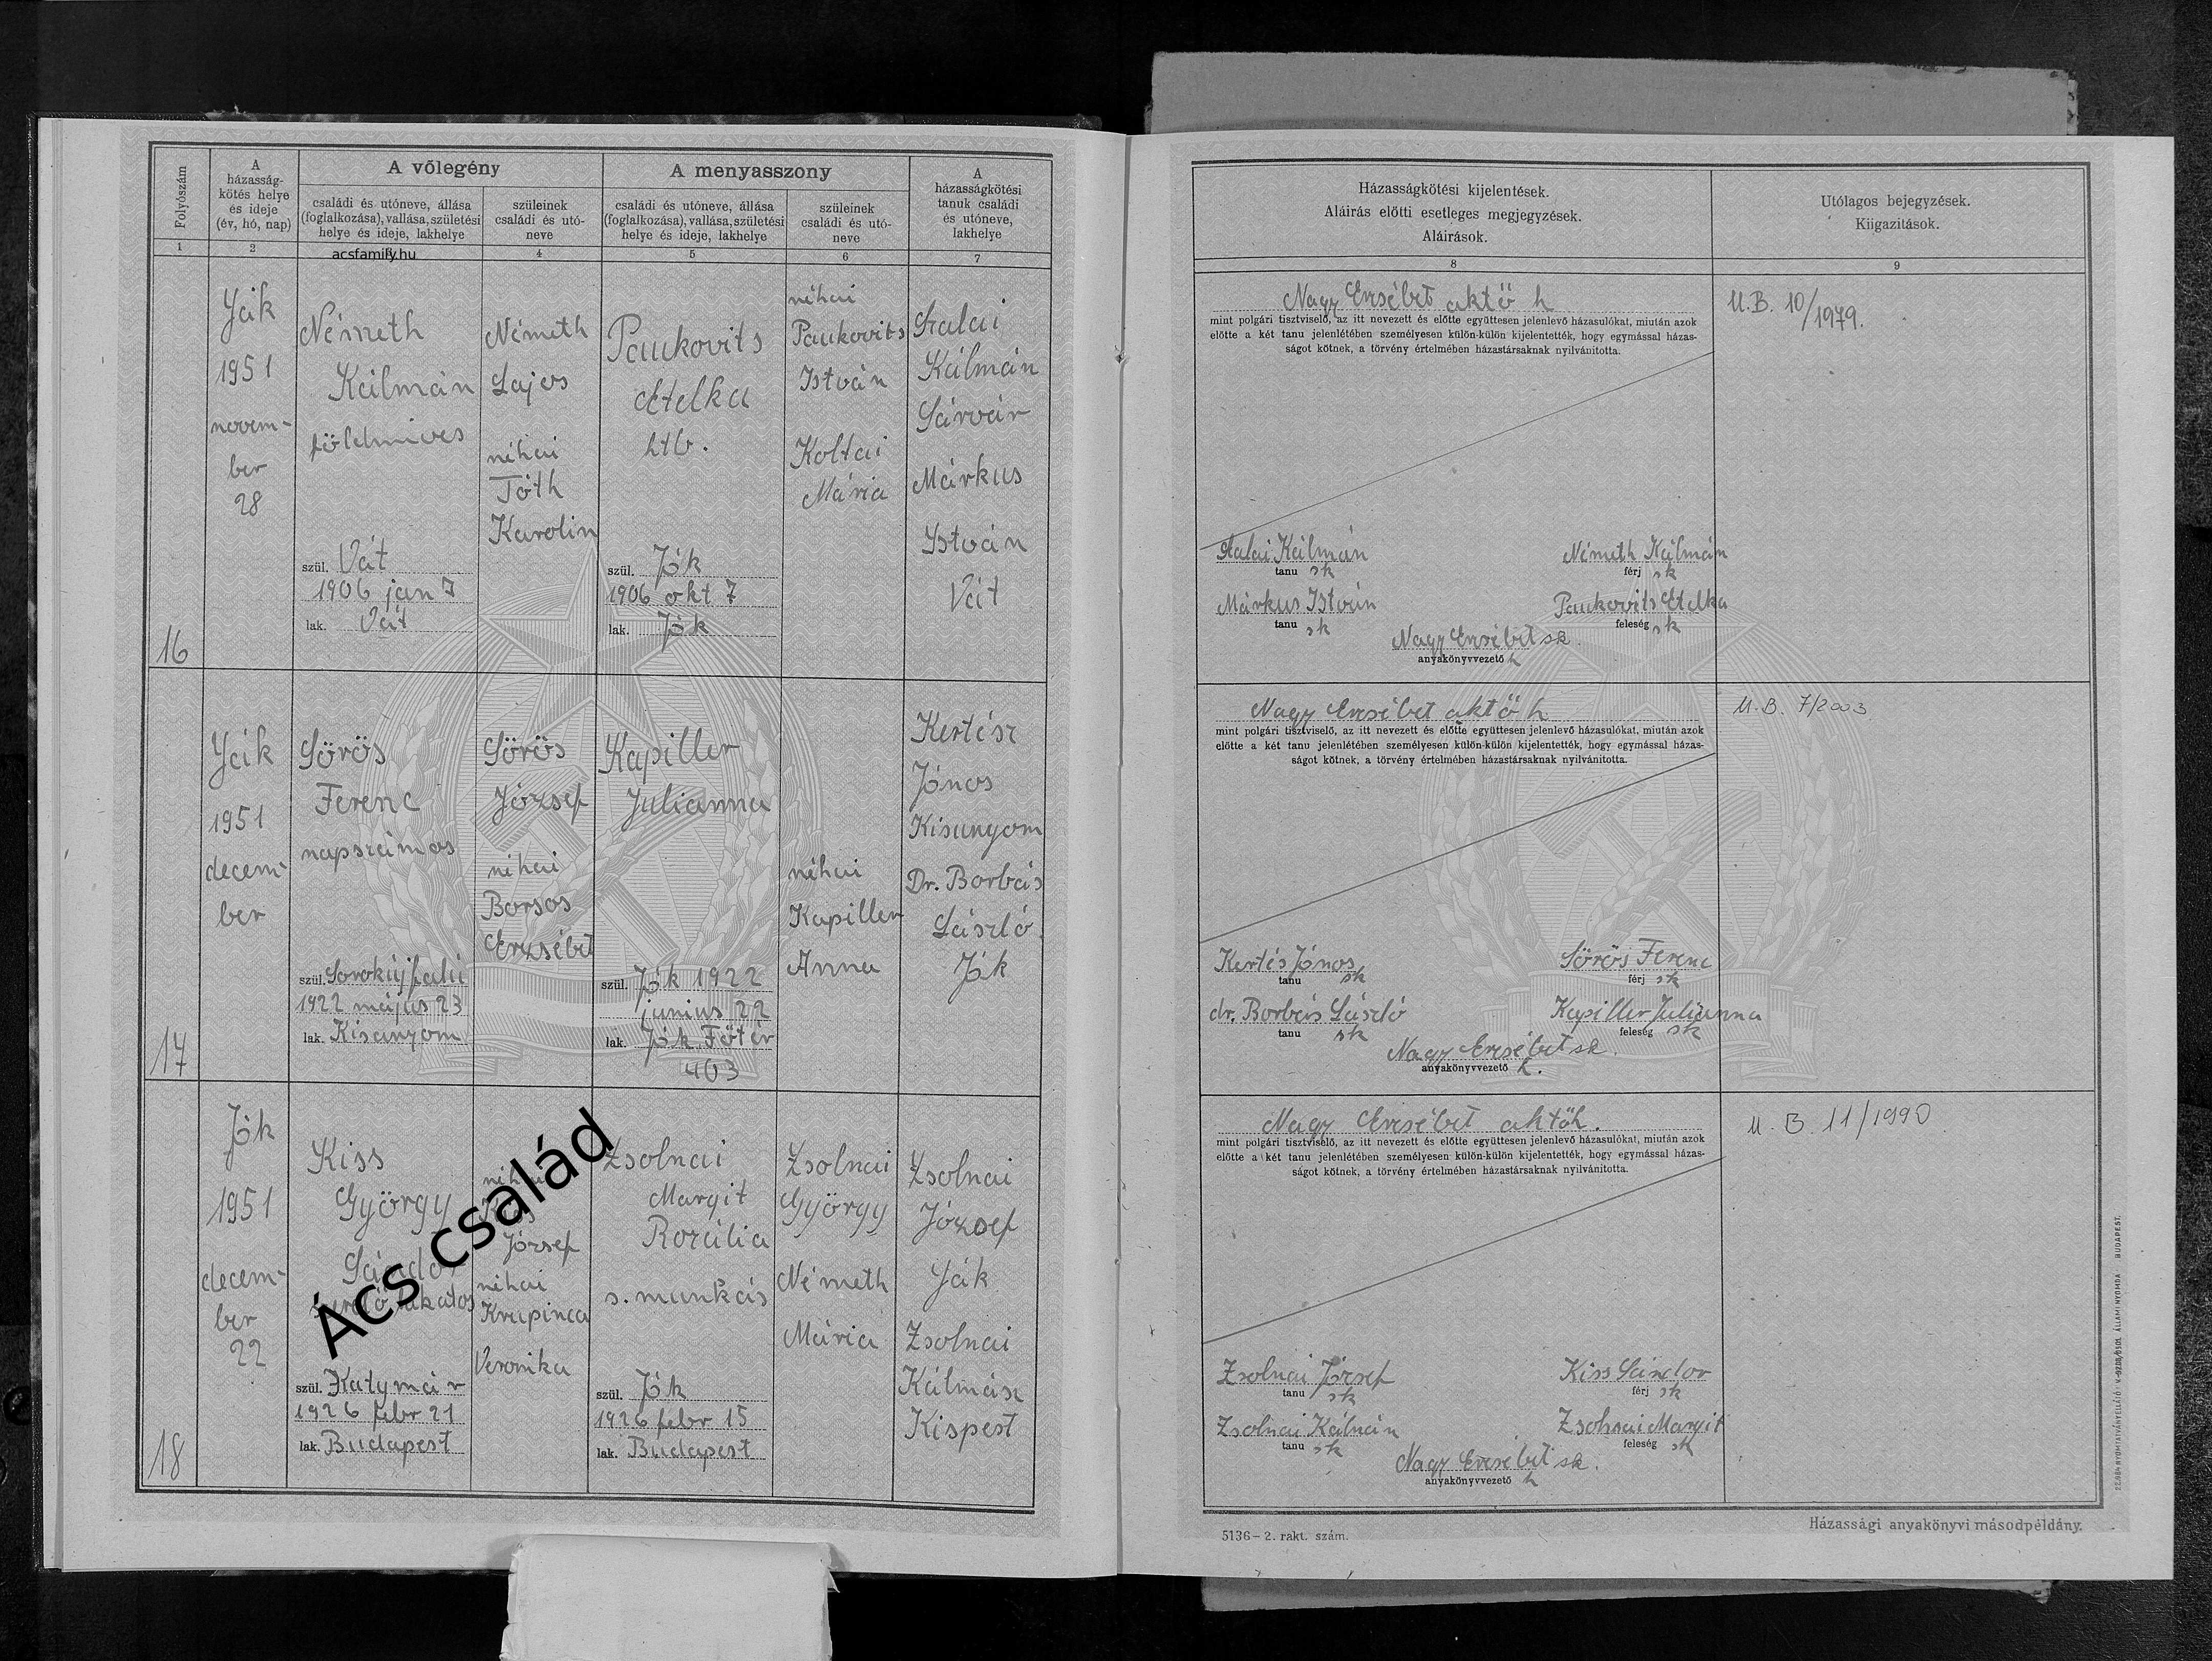 Folyószám
A
házasság-
kötés helye
és ideje
(év, hó, nap)
A vőlegény
családi és utóneve, állása
(foglalkozása), vallása, születési
helye és ideje, lakhelye
szüleinek
családi és utó-
neve
A menyasszony
családi és utóneve, állása
(foglalkozása), vallása, születési
helye és ideje, lakhelye
szüleinek
családi és utó-
neve
A
házasságkötési
tanuk családi
és utóneve,
lakhelye
1
2
acsfamily.hu
4
5
6
7
16
Ják
1951
novem-
ber
28
Németh
Kálmán
földmíves
szül. Vát
1906 jan 7
lak. Vát
Németh
Lajos
néhai
Tóth
Karolin
Paukovits
Etelka
htb.
szül. Ják
1906 okt 7
lak. Ják
néhai
Paukovits
István
Koltai
Mária
Szalai
Kálmán
Sárvár
Márkus
István
Vát
17
Ják
1951
decem-
ber
Sörös
Ferenc
napszámos
szül. Sorokújfalú
1922 május 23
lak. Kisunyom
Sörös
József
néhai
Borsos
Erzsébet
Kapiller
Julianna
szül. Ják 1922
június 22
lak. Ják Főtér
403
néhai
Kapiller
Anna
Kertész
János
Kisunyom
Dr. Borbás
László
Ják
18
Ják
1951
decem-
ber
22
Kiss
György
Sándor
lakatos
szül. Katymár
1926 febr 21
lak. Budapest
néhai
Kiss
József
néhai
Krapinca
Veronika
Zsolnai
Margit
Rozália
s. munkás
szül. Ják
1926 febr 15
lak. Budapest
Zsolnai
György
Németh
Mária
Zsolnai
József
Ják
Zsolnai
Kálmán
Kispest
Ács család
Házasságkötési kijelentések.
Aláírás előtti esetleges megjegyzések.
Aláírások.
Utólagos bejegyzések.
Kiigazítások.
8
9
Nagy Erzsébet aktő h
mint polgári tisztviselő, az itt nevezett és előtte együttesen jelenlevő házasulókat, miután azok
előtte a két tanu jelenlétében személyesen külön-külön kijelentették, hogy egymással házas-
ságot kötnek, a törvény értelmében házastársaknak nyilvánította.
U.B. 10/1979.
Szalai Kálmán
tanu sk
Németh Kálmán
férj sk
Márkus István
tanu sk
Paukovits Etelka
feleség sk
Nagy Erzsébet sk.
anyakönyvvezető h
Nagy Erzsébet aktő h
mint polgári tisztviselő, az itt nevezett és előtte együttesen jelenlevő házasulókat, miután azok
előtte a két tanu jelenlétében személyesen külön-külön kijelentették, hogy egymással házas-
ságot kötnek, a törvény értelmében házastársaknak nyilvánította.
U.B. 7/2003
Kertés János
tanu sk
Sörös Ferenc
férj sk
dr. Borbás László
tanu sk
Kapiller Julianna
feleség sk
Nagy Erzsébet sk.
anyakönyvvezető h.
Nagy Erzsébet aktőh.
mint polgári tisztviselő, az itt nevezett és előtte együttesen jelenlevő házasulókat, miután azok
előtte a két tanu jelenlétében személyesen külön-külön kijelentették, hogy egymással házas-
ságot kötnek, a törvény értelmében házastársaknak nyilvánította.
U.B. 11/1990
Zsolnai József
tanu sk
Kiss Sándor
férj sk
Zsolnai Kálmán
tanu sk
Zsolnai Margit
feleség sk
Nagy Erzsébet sk.
anyakönyvvezető h
5136-2. rakt. szám.
Házassági anyakönyvi másodpéldány.
ÁLLAMI NYOMDA BUDAPEST.